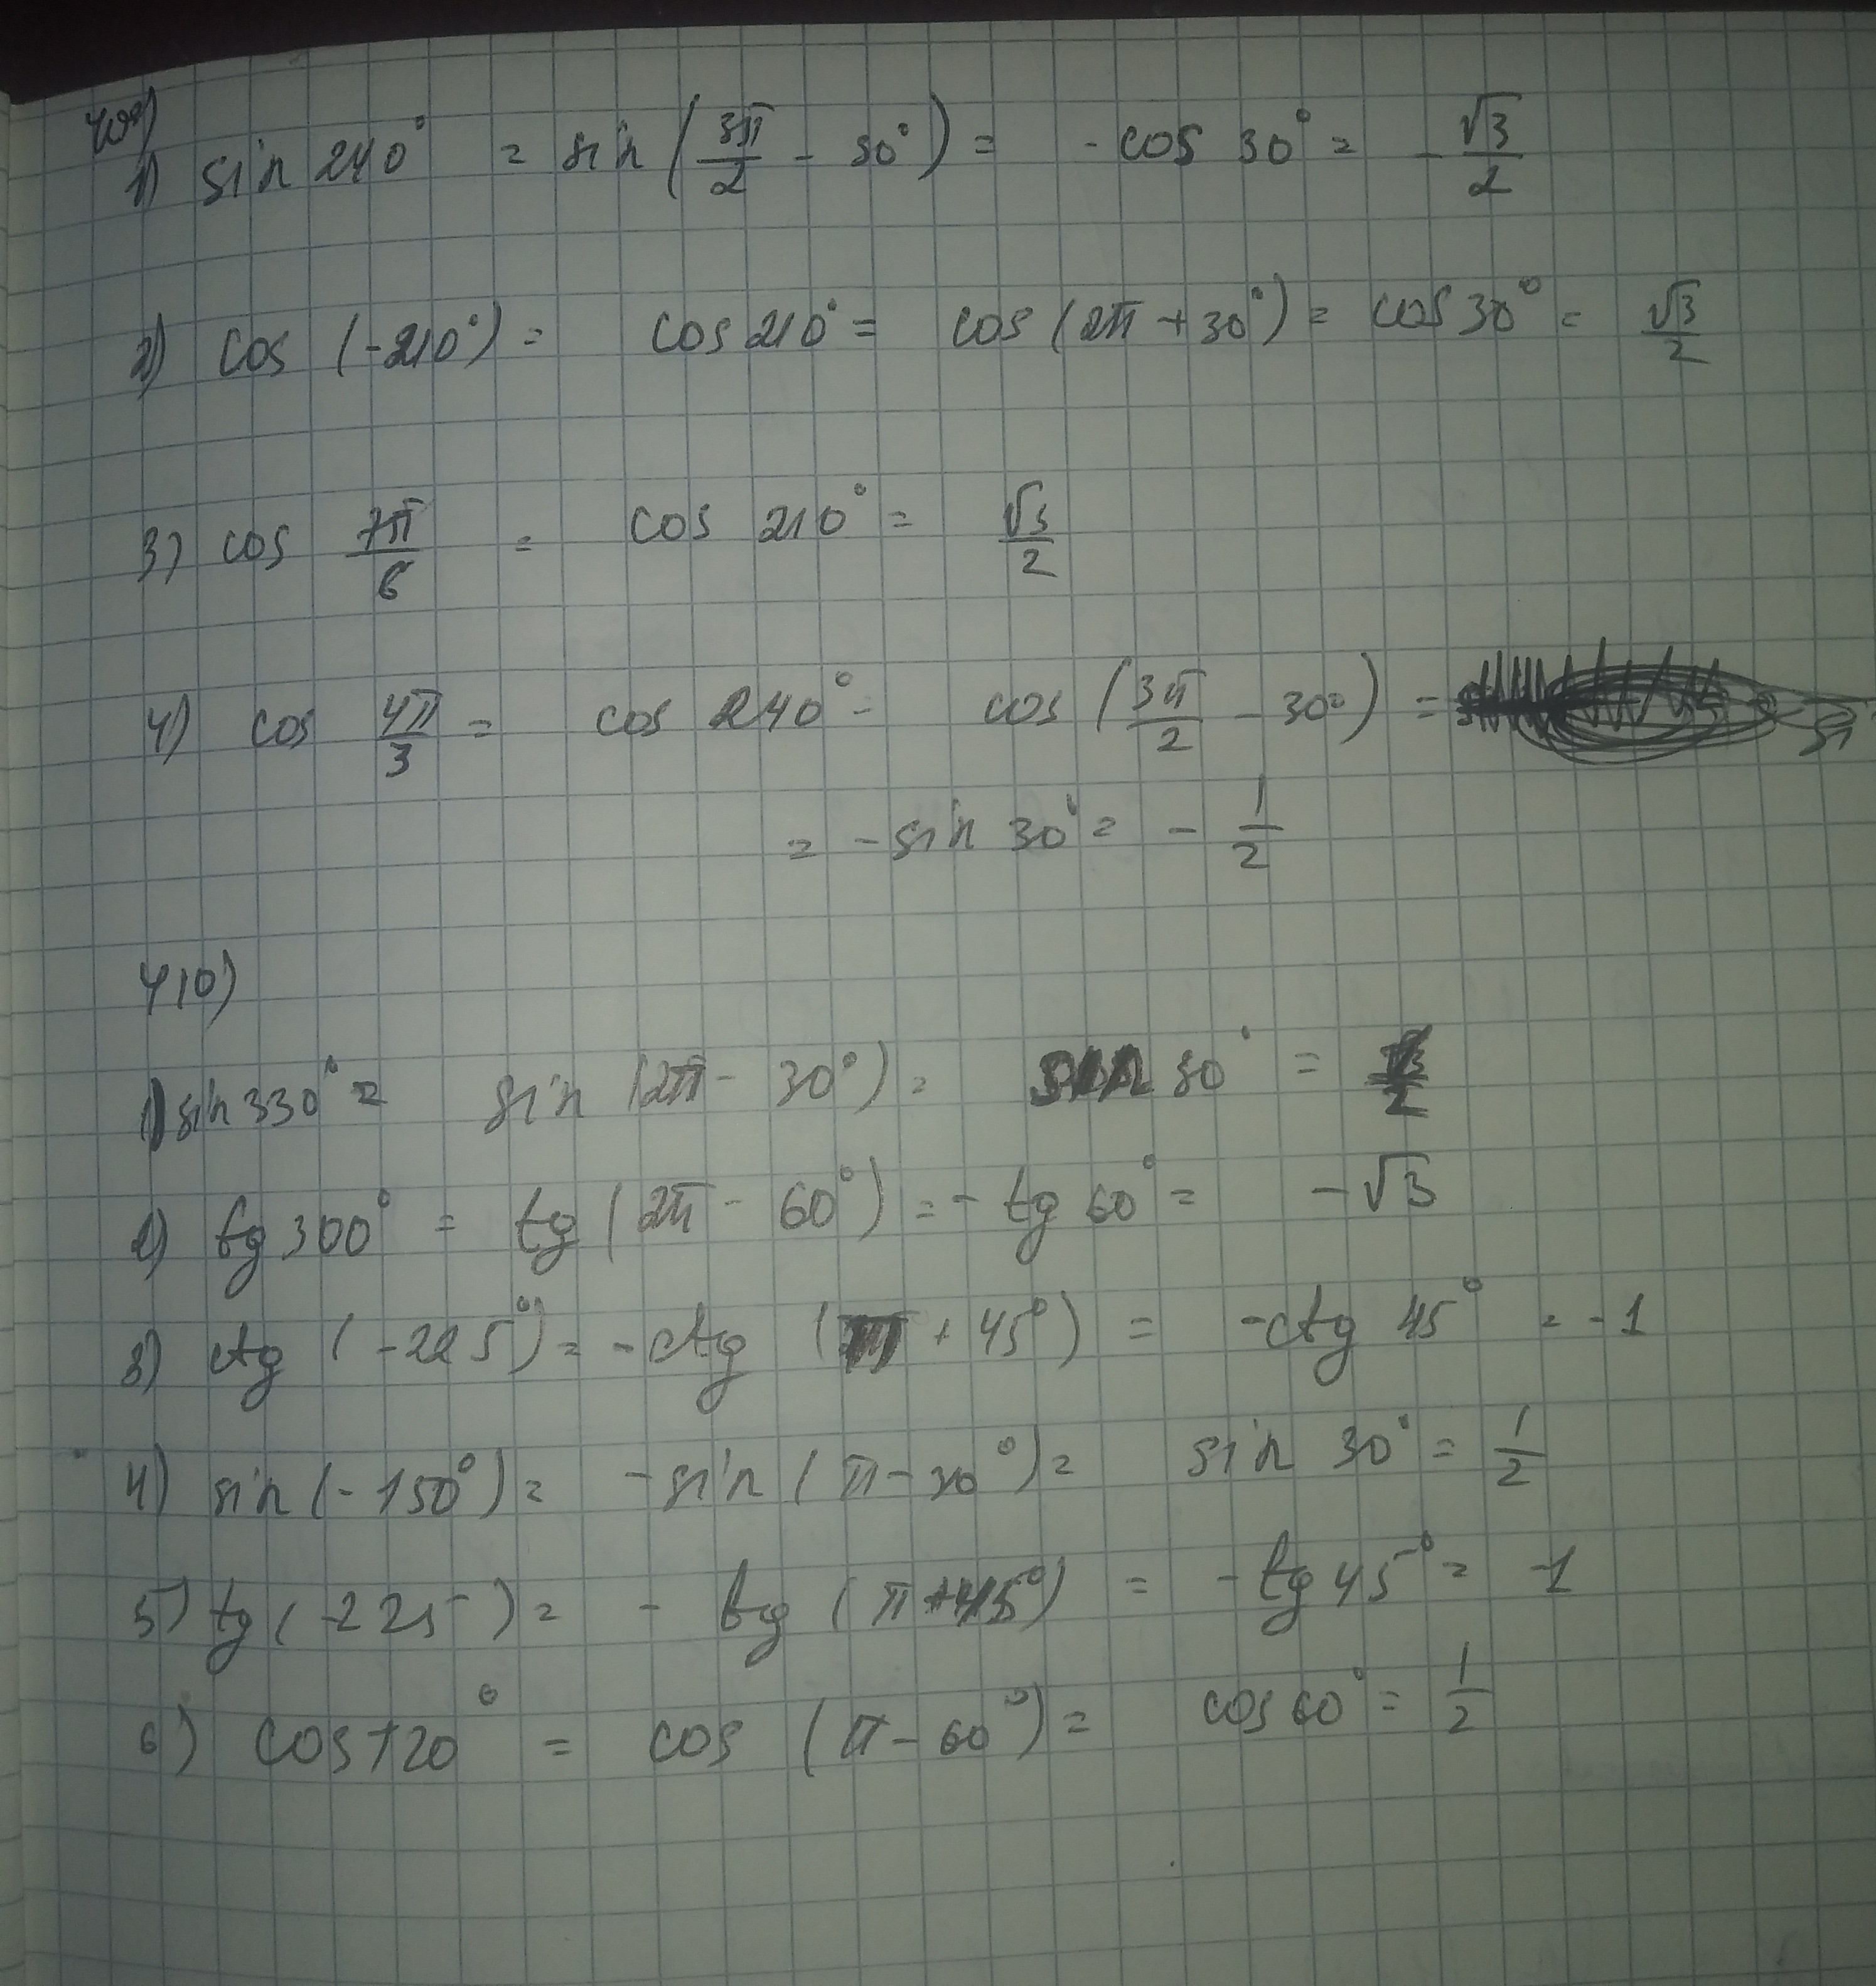 409)
1) sin 240° = sin (3π/2 - 30°) = - cos 30° = - √3/2
2) cos (-210°) = cos 210° = cos (2π + 30°) = cos 30° = √3/2
3) cos 7π/6 = cos 210° = √3/2
4) cos 4π/3 = cos 240° - cos (3π/2 - 30°) =
= - sin 30° = - 1/2
410)
1) sin 330° = sin (2π - 30°) = sin 30° =
2) tg 300° = tg (2π - 60°) = - tg 60° = - √3
3) ctg (-225°) = - ctg (π + 45°) = - ctg 45° = - 1
4) sin (-150°) = - sin (π - 30°) = sin 30° = 1/2
5) tg (-225) = - tg (π + 45°) = - tg 45° = -1
6) cos 120° = cos (π - 60°) = cos 60° = 1/2